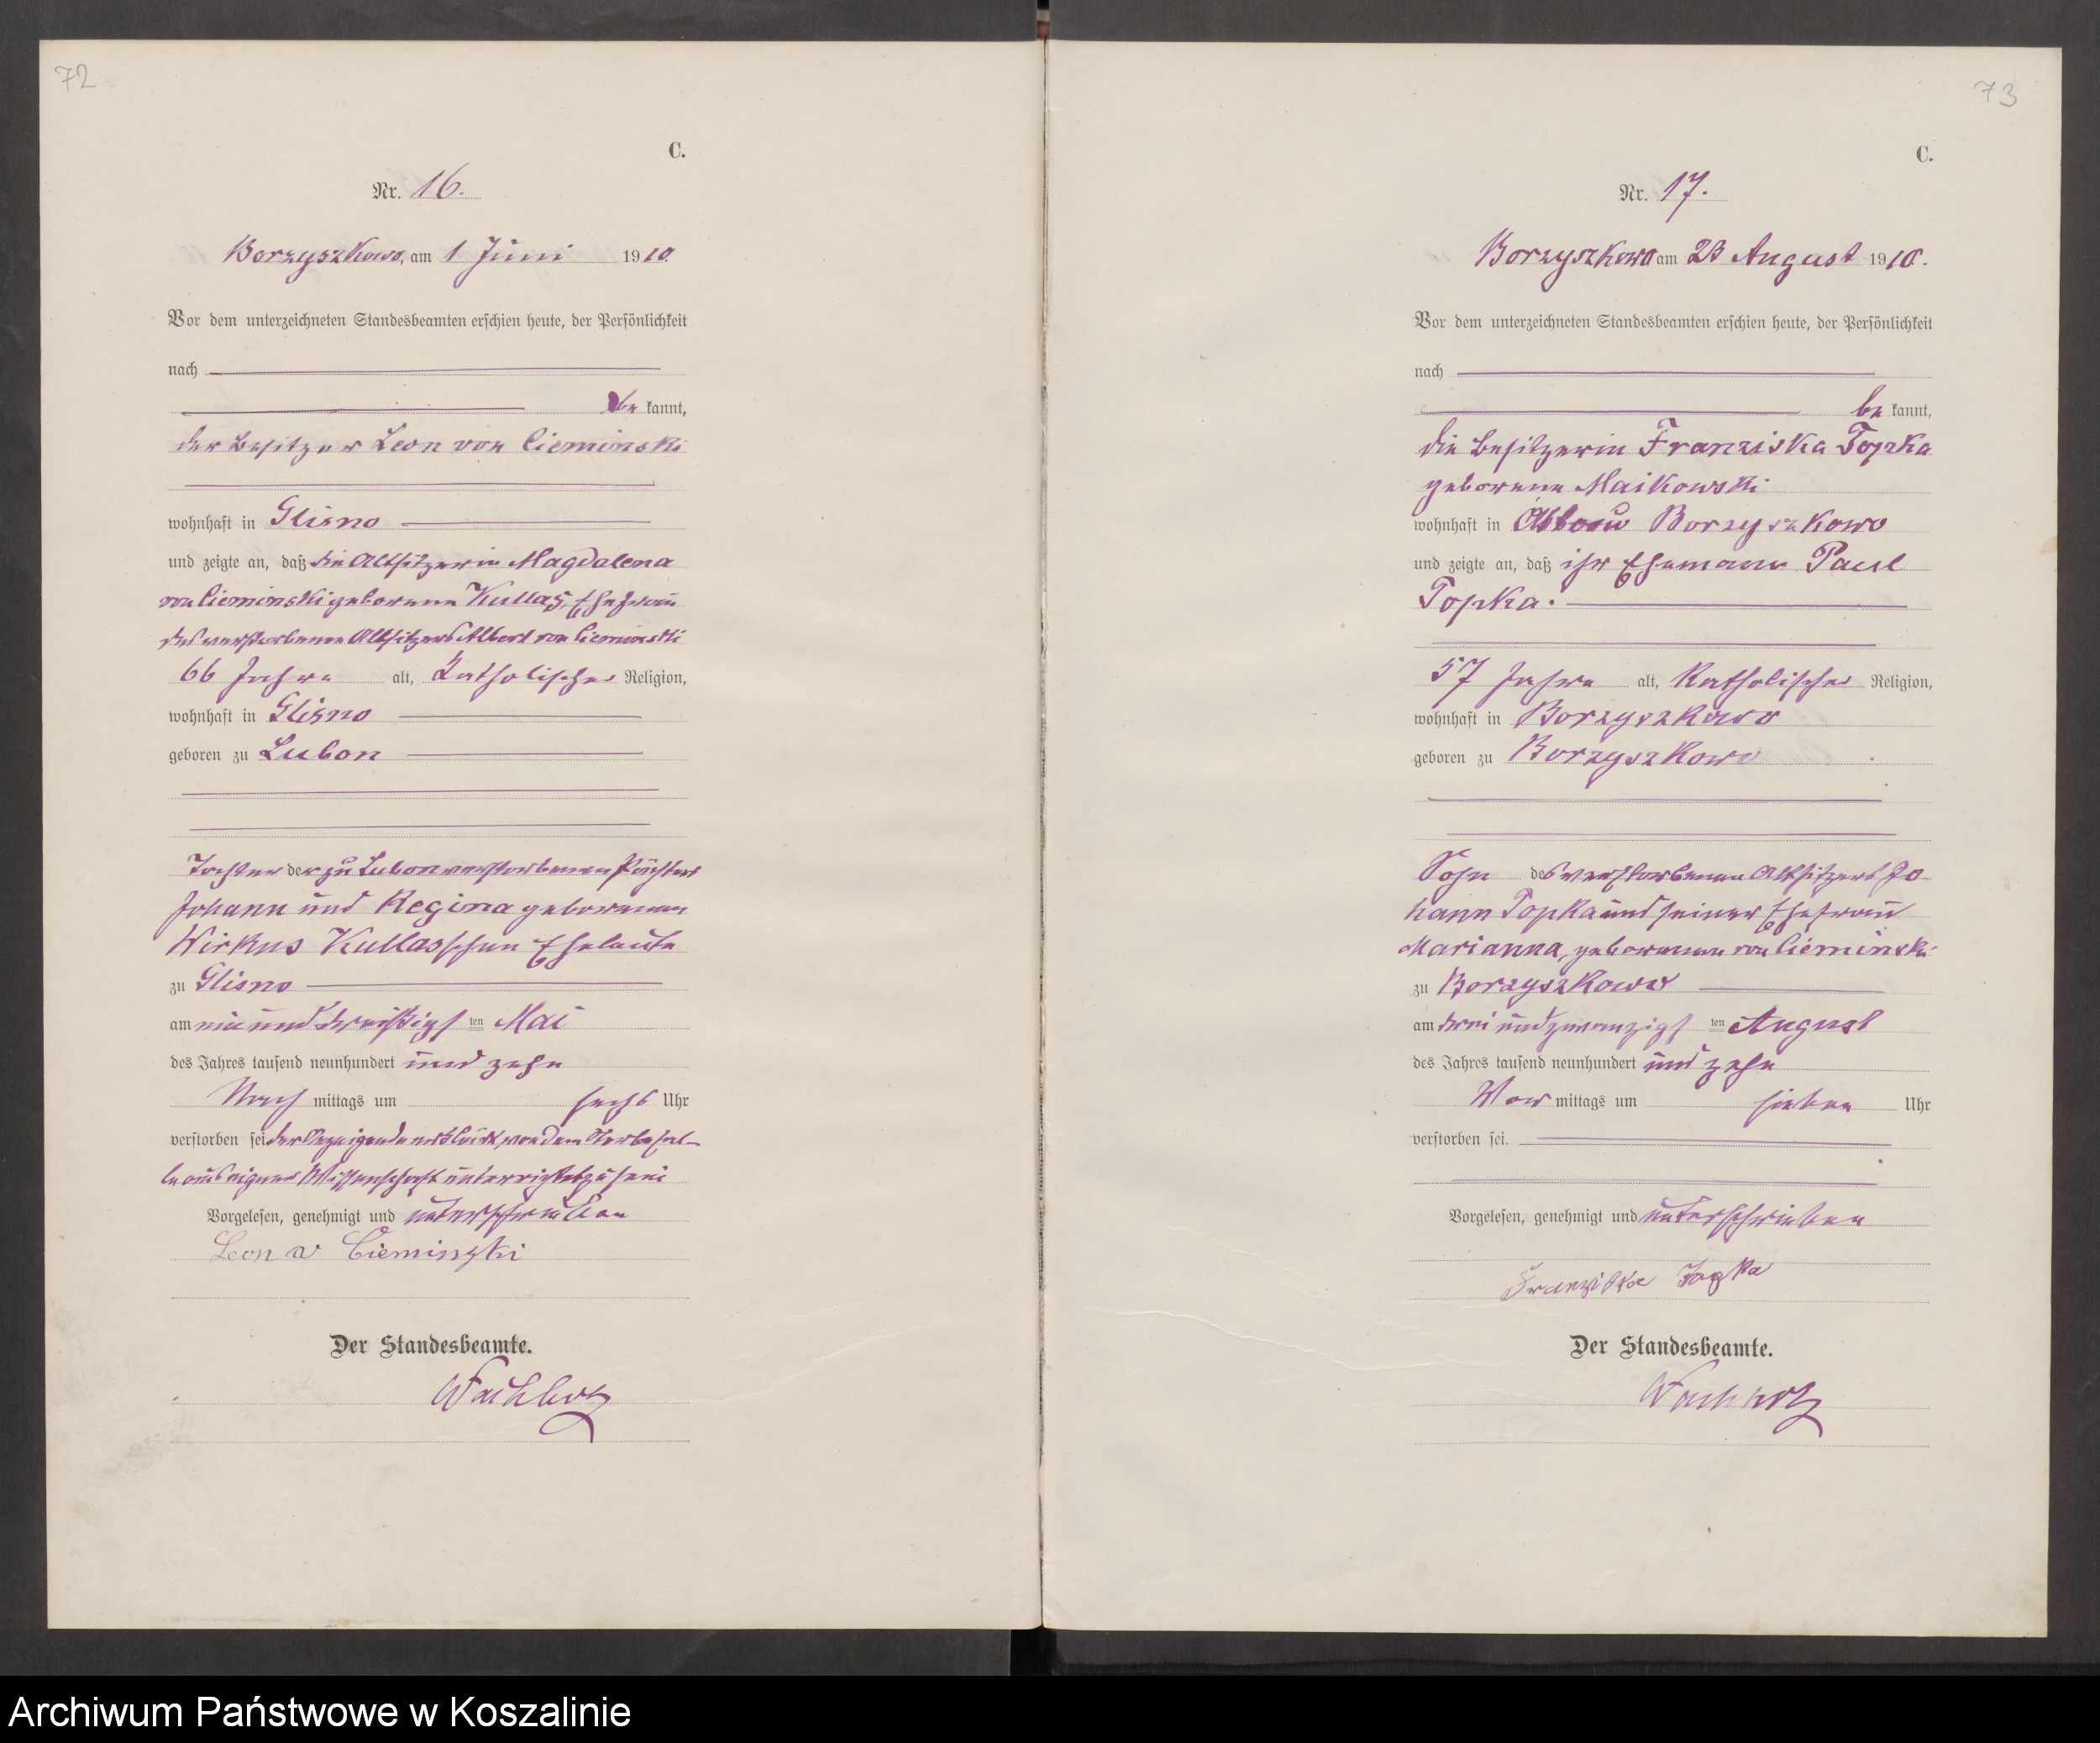 72
C.
Nr. 16.
Borzyszkowo, am 1 Juni 1910.
Vor dem unterzeichneten Standesbeamten erschien heute, der Persönlichkeit
nach
be kannt,
der Besitzer Leon von Cieminski
wohnhaft in Glisno
und zeigte an, daß die Altsitzerin Magdalena
von Cieminski geborene Kullas, Ehefrau
des verstorbenen Altsitzers Albert von Cieminski
66 Jahre alt, Katholischer Religion,
wohnhaft in Glisno
geboren zu Lubon
Tochter der zu Lubon verstorbenen Pächter
Johann und Regina geborenen
Wirkus Kullasschen Eheleute
zu Glisno
am ein und dreißigs ten Mai
des Jahres tausend neunhundert und zehn
Nach mittags um sechs Uhr
verstorben sei der Anzeigende erklärt, von dem Sterbefal-
le aus eigener Wissenschaft unterrichtet zu sein
Vorgelesen, genehmigt und unterschrieben
Leon v Cieminski
Der Standesbeamte.
Wachholz
73
C.
Nr. 17.
Borzyszkowo am 23 August 1910.
Vor dem unterzeichneten Standesbeamten erschien heute, der Persönlichkeit
nach
be kannt,
die Besitzerin Franziska Topka
geborene Maikowski
wohnhaft in Borzyszkowo
und zeigte an, daß ihr Ehemann Paul
Topka.
57 Jahre alt, Katholischer Religion,
wohnhaft in Borzyszkowo
geboren zu Borzyszkowo
Sohn des verstorbenen Altsitzers Jo-
hann Topka und seiner Ehefrau
Marianna, geborenen von Cieminski
zu Borzyszkowo
am drei und zwanzigs ten August
des Jahres tausend neunhundert und zehn
Vor mittags um sieben Uhr
verstorben sei.
Vorgelesen, genehmigt und unterschrieben
Franziska Topka
Der Standesbeamte.
Wachholz
Archiwum Państwowe w Koszalinie